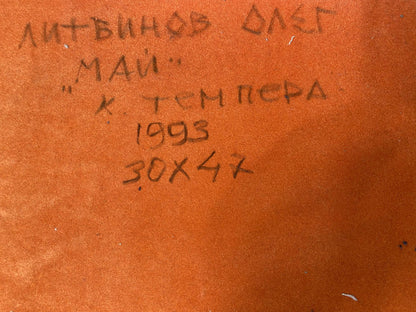 ЛИТВИНОВ ОЛЕГ
"МАЙ"
К. ТЕМПЕРА
1993
30X47